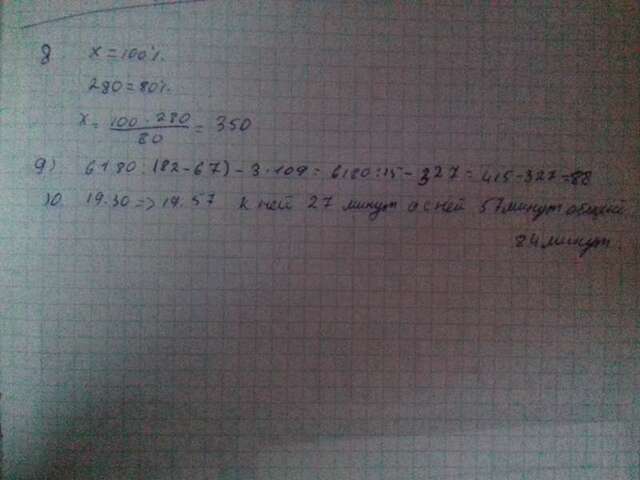 8. x = 100%.
280 = 80%.
x = 100 · 280 / 80 = 350
9) 6180 : (82-67) - 3 · 109 = 6180 : 15 - 327 = 415-327=88
10. 19.30 => 19.57 к ней 27 минут а с ней 57 минут общей
84 минут.